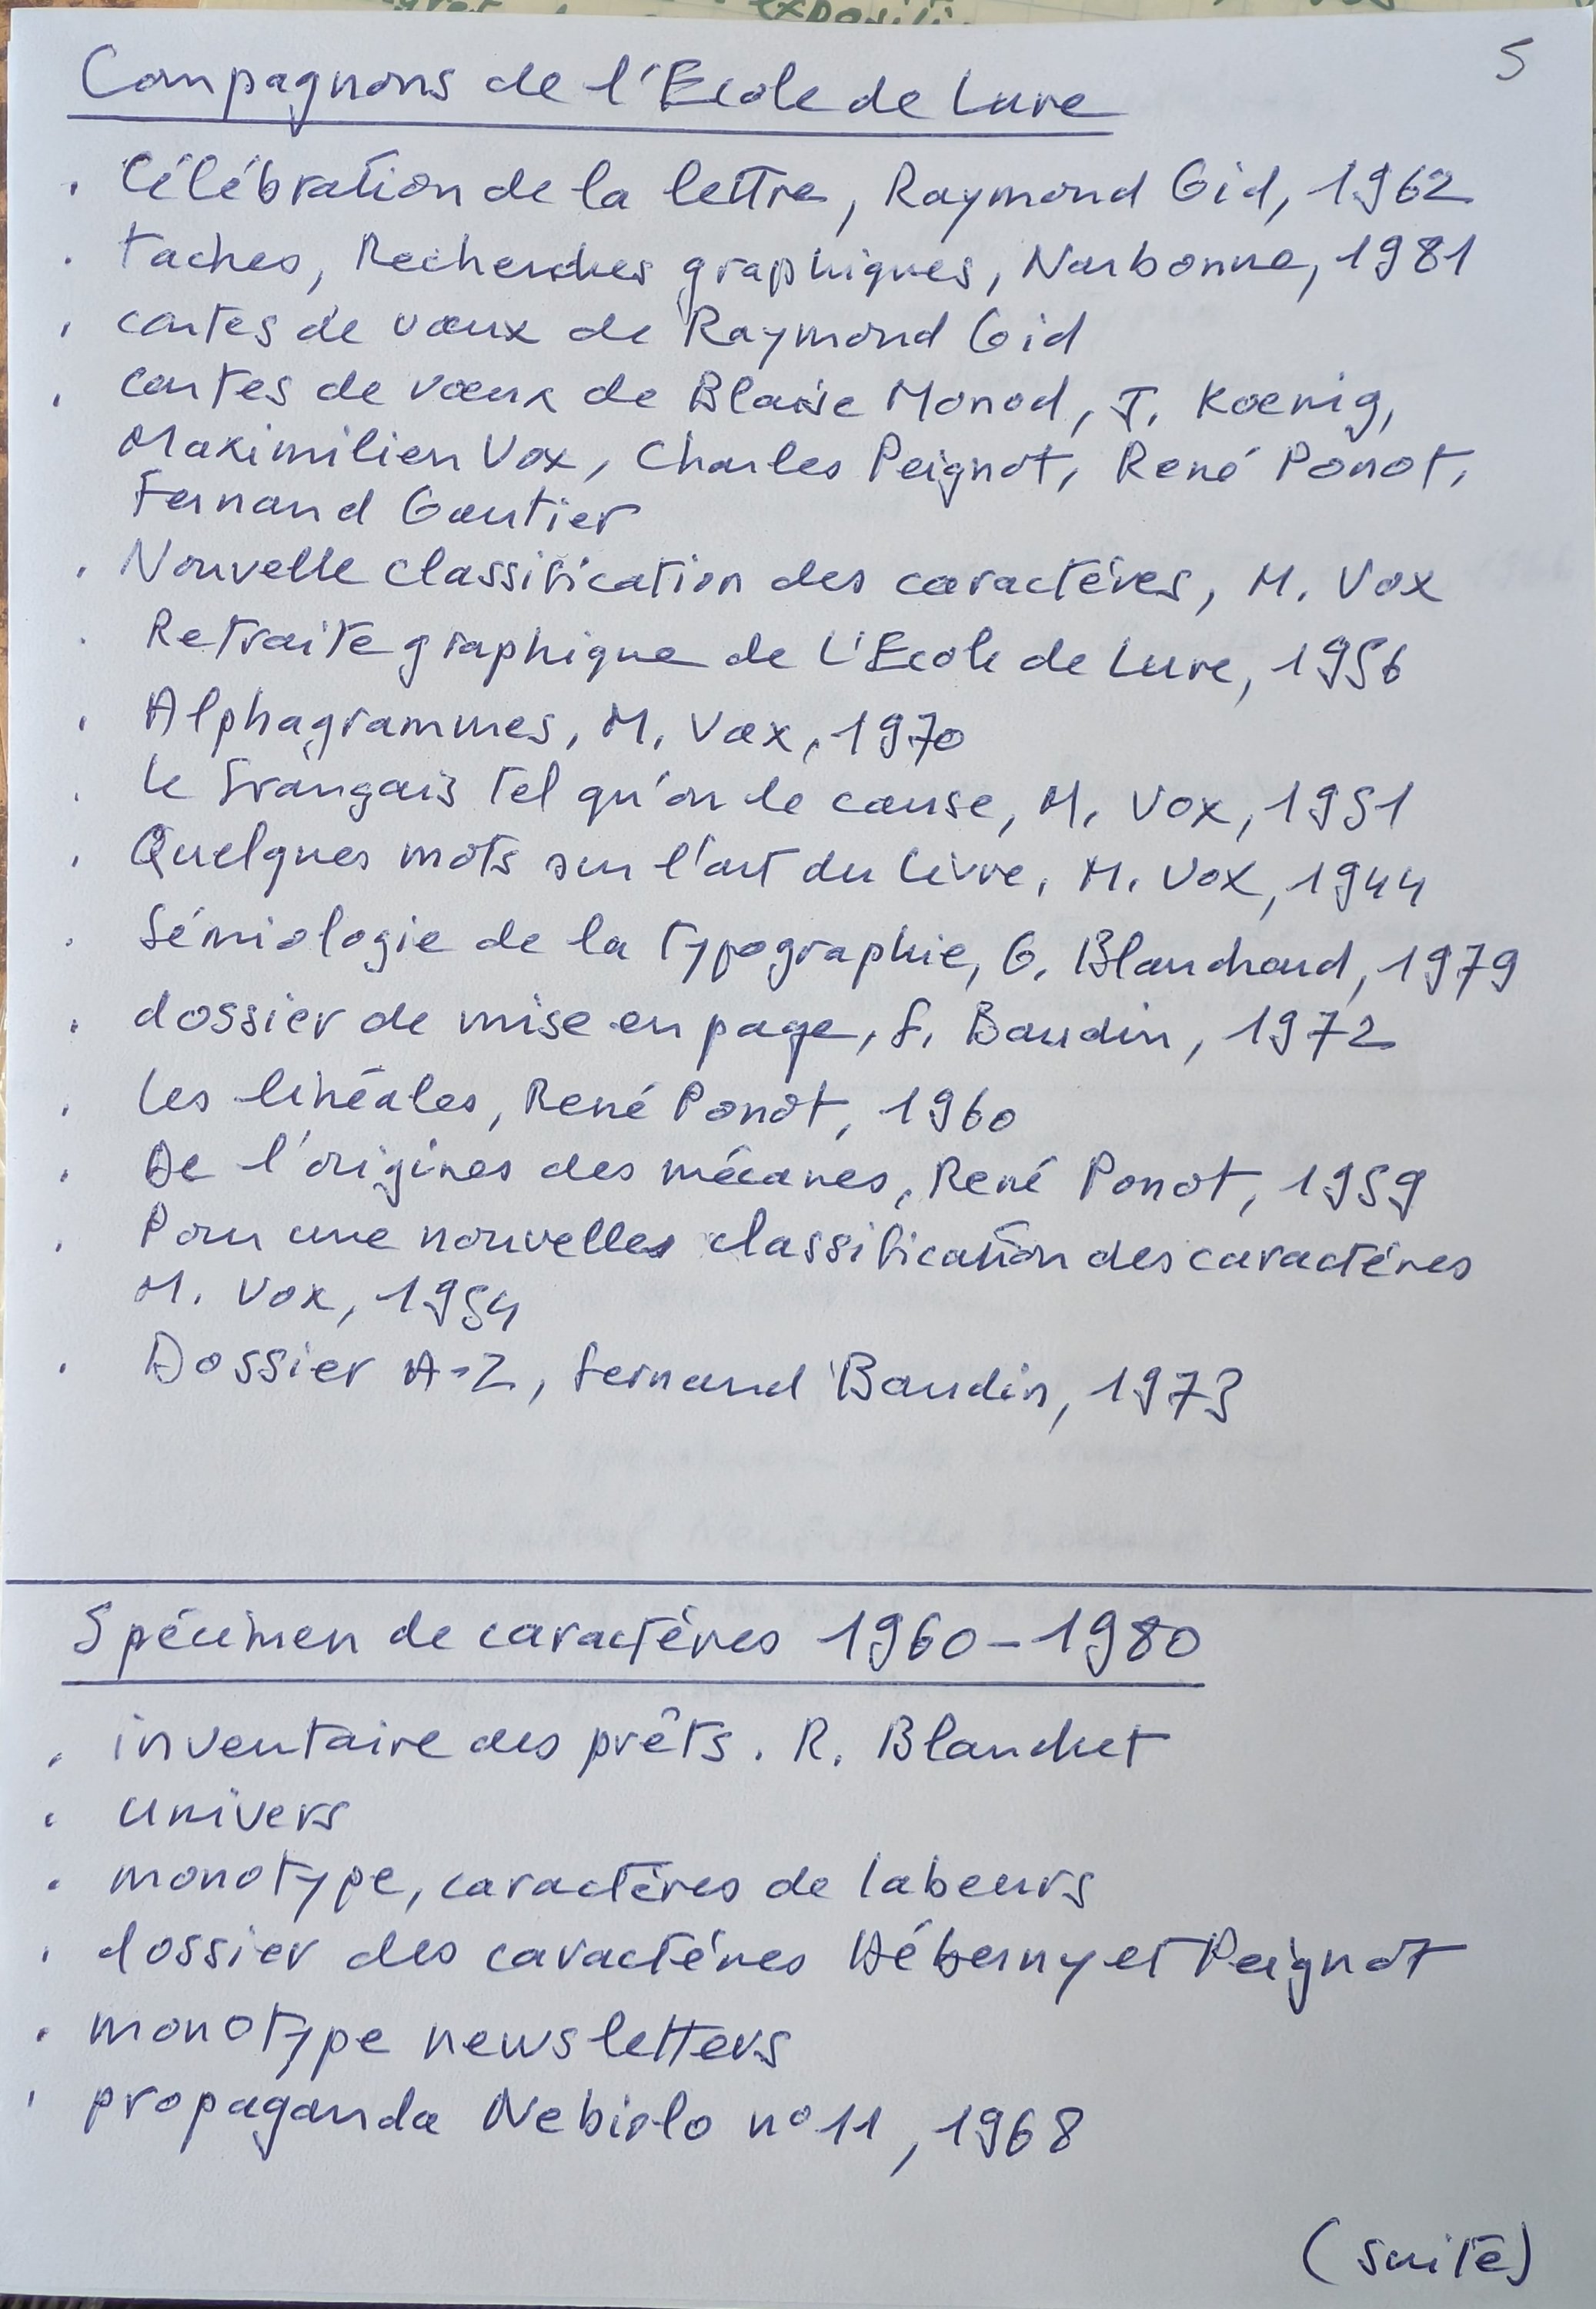 5
Compagnons de l'Ecole de Lure
. Célébration de la lettre, Raymond Gid, 1962
. taches, Recherches graphiques, Narbonne, 1981
. cartes de vœux de Raymond Gid
. cartes de vœux de Blaise Monod, J. Koenig,
Maximilien Vox, Charles Peignot, René Ponot,
Fernand Gautier
. Nouvelle classification des caractéres, M. Vox
. Retraite graphique de L'Ecole de Lure, 1956
. Alphagrammes, M. Vox, 1970
. le français tel qu'on le cause, M. Vox, 1951
. Quelques mots sur l'art du livre, M. Vox, 1944
. Sémiologie de la typographie, G. Blanchard, 1979
. dossier de mise en page, f. Baudin, 1972
. les linéales, René Ponot, 1960
. De l'origines des mécanes, René Ponot, 1959
. Pour une nouvelles classification des caractéres
M. Vox, 1954
. Dossier A-Z, fernand Baudin, 1973
Spécimen de caractéres 1960-1980
. inventaire des prêts. R. Blanchet
. univers
. monotype, caractères de labeurs
. dossier des caractéres Déberny et Peignot
. monotype newsletters
. propaganda Nebiolo nº 11, 1968
(suite)